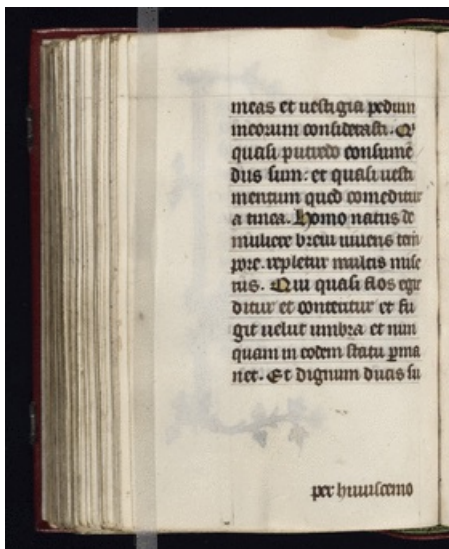 meas et uestigia pedum
meorum considerasti. Q
quasi putredo consume
dus sum: et quasi uesti
mentum quod comeditur
a tinea. Homo natus de
muliere breui uiuens tem
pore. repletur multis mise
riis. Qui quasi flos egre
ditur et conteritur et fu
git uelut umbra et nun
quam in eodem statu pma
net. Et dignum ducis su
per huiuscemo